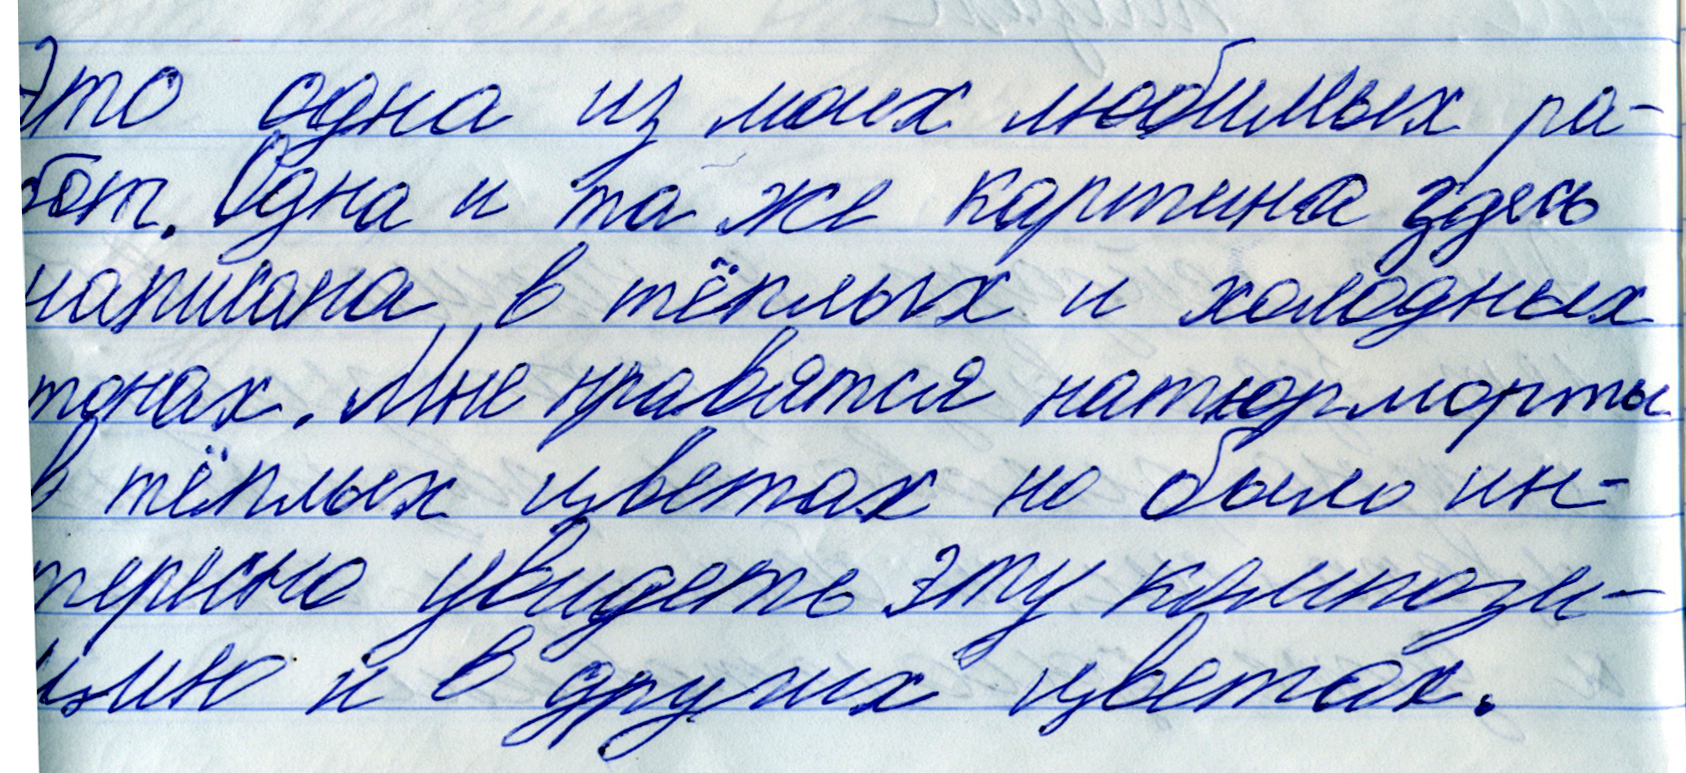 Это одна из моих любимых ра-
бот. Одна и та же картина здесь
написана в тёплых и холодных
тонах. Мне нравятся натюрморты
в тёплых цветах но было ин-
тересно увидеть эту компози-
цию и в других цветах.